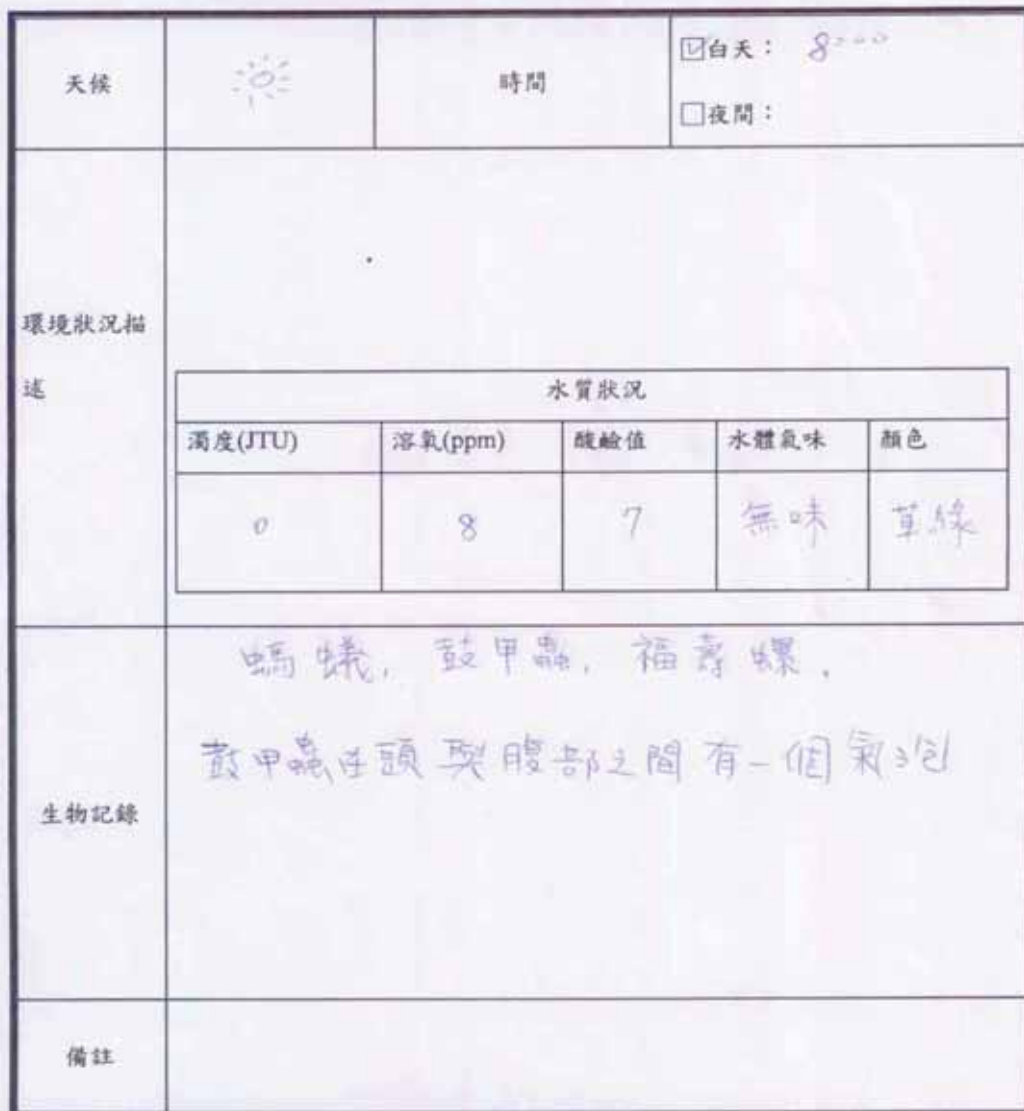 天候
時間
☑白天： 8:00
□夜間：
環境狀況描
述
水質狀況
濁度(JTU) 溶氧(ppm) 酸鹼值 水體氣味 顏色
0 8 7 無味 草綠
生物記錄
螞蟻，鼓甲蟲，福壽螺．
鼓甲蟲在頭與腹部之間有一個氣泡
備註